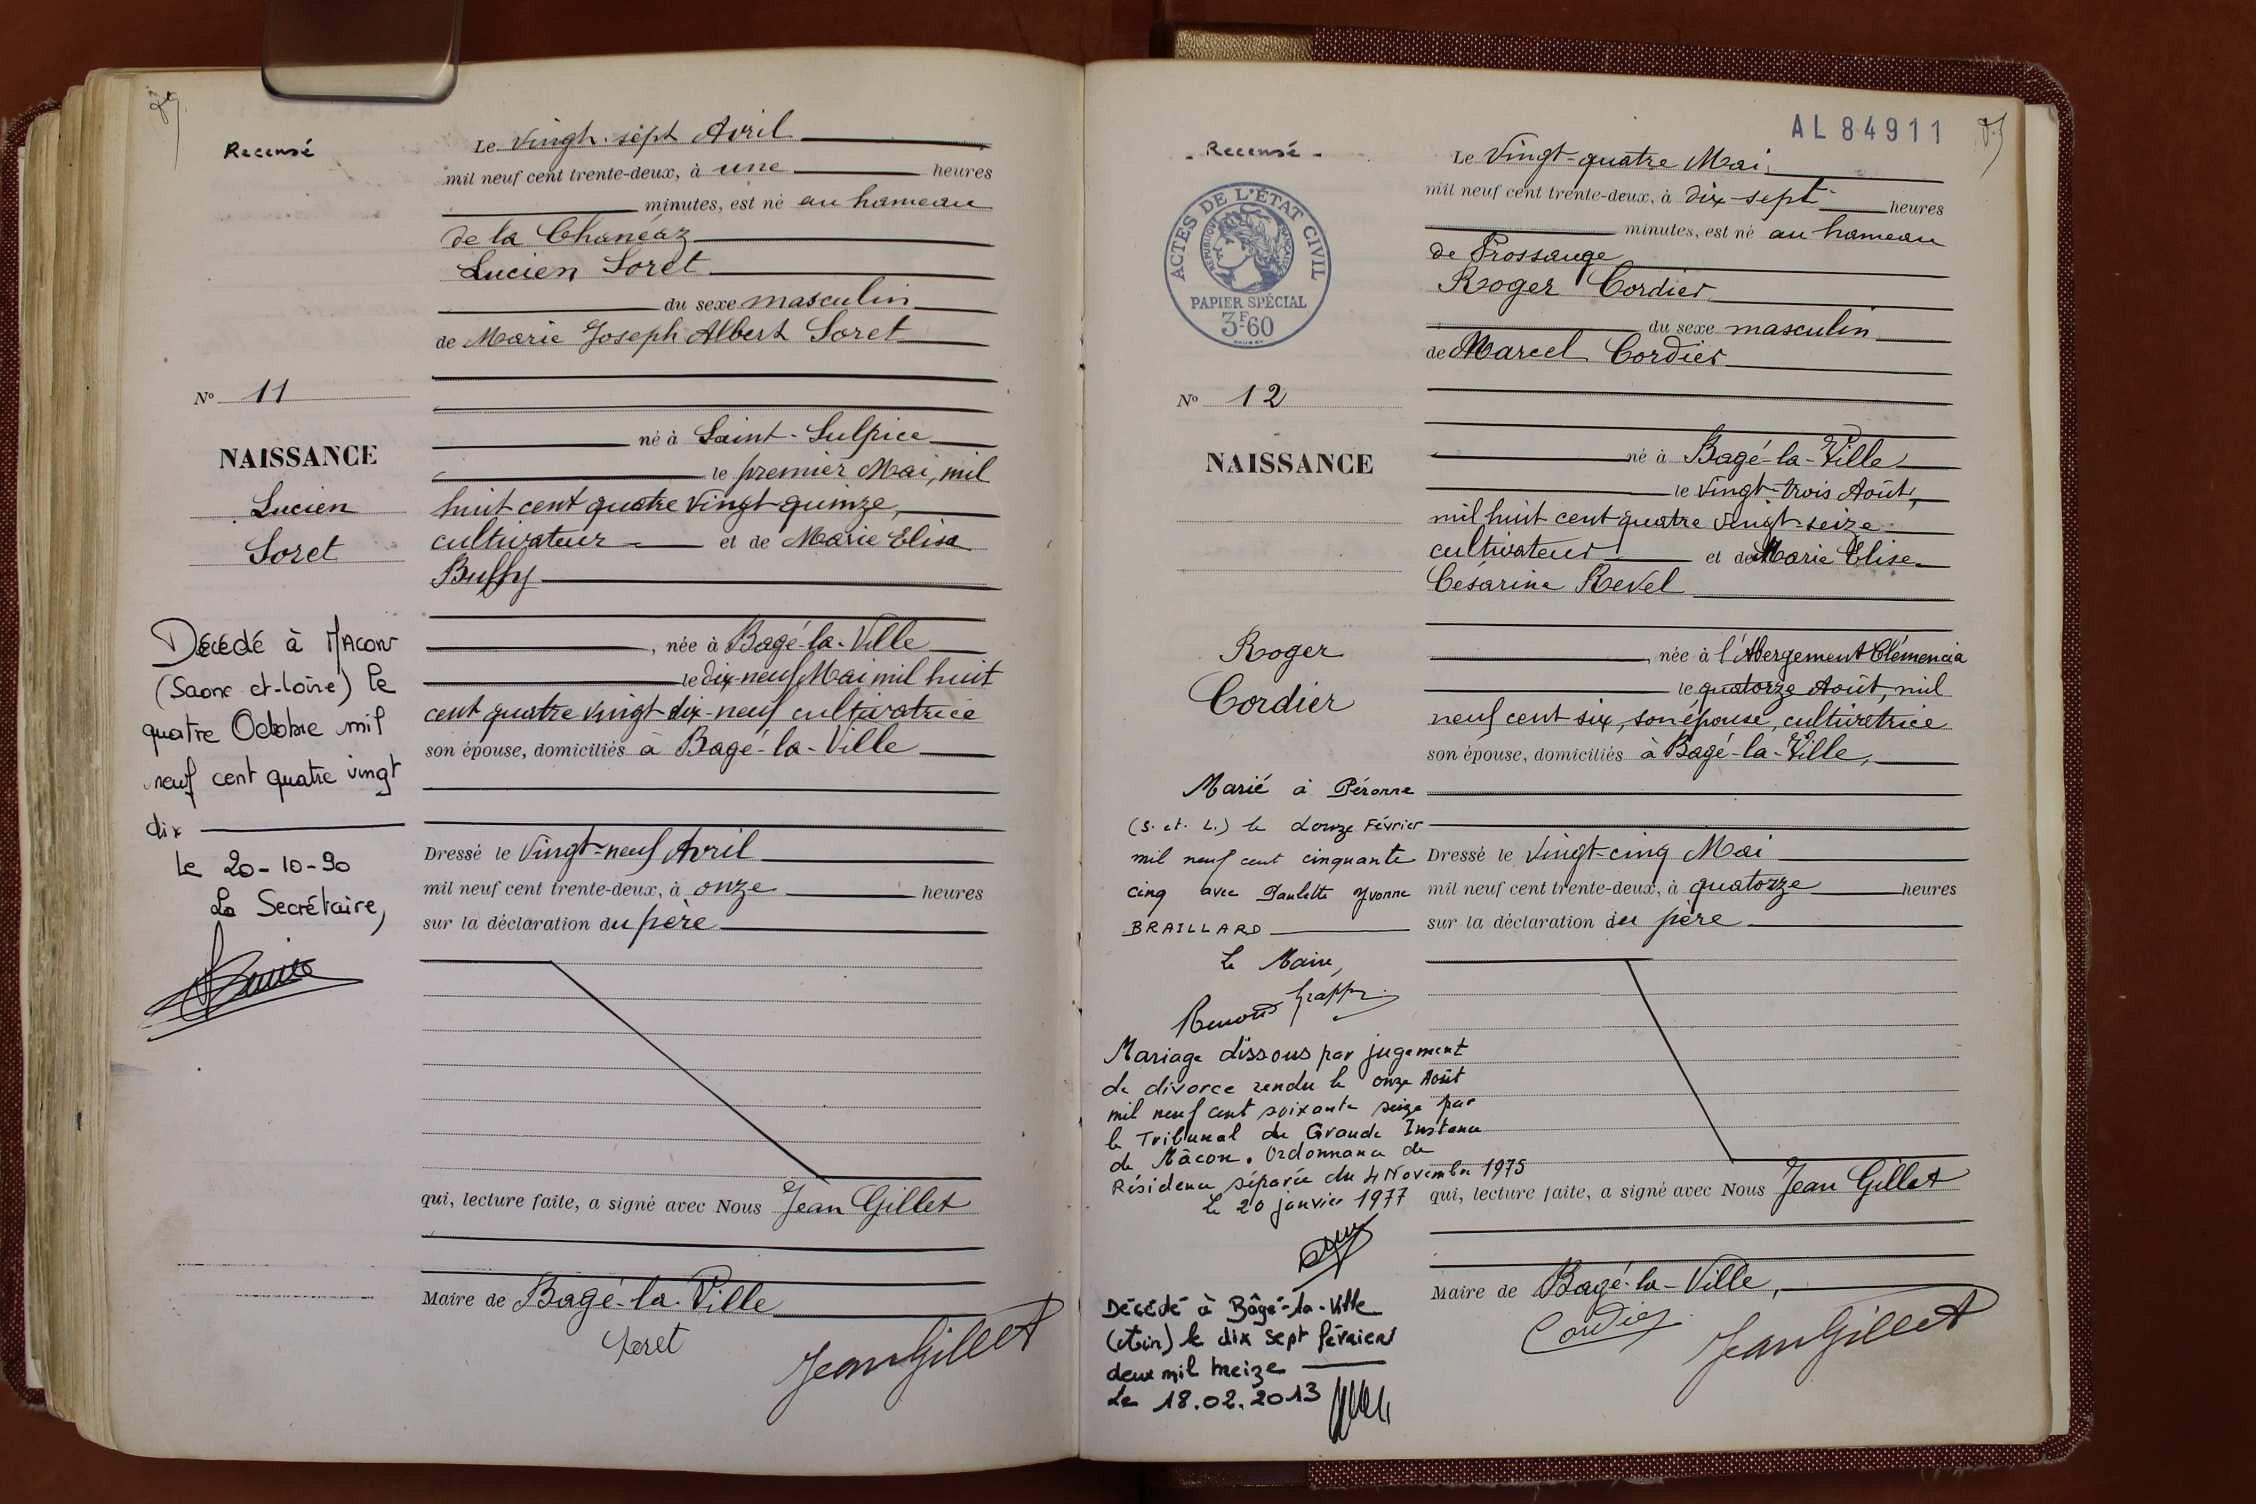 Recensé
Le Vingt-sept Avril
mil neuf cent trente-deux, à une heures
minutes, est né au hameau
de la Chanéaz
Lucien Soret
du sexe masculin
de Marie Joseph Albert Soret
Nº 11
né à Saint-Sulpice
NAISSANCE
le premier Mai, mil
Lucien
huit cent quatre vingt-quinze,
cultivateur et de Marie Elisa
Soret
Buffy
Décédé à MACON
(Saone et-Loire) le
quatre Octobre mil
neuf cent quatre vingt
dix
Le 20-10-90
La Secrétaire,
née à Bagé-la-Ville
le dix-neuf Mai mil huit
cent quatre vingt dix-neuf cultivatrice
son épouse, domiciliés à Bagé-la-Ville
Dressé le Vingt-neuf Avril
mil neuf cent trente-deux, à onze heures
sur la déclaration du père
qui, lecture faite, a signé avec Nous Jean Gillet
Maire de Bagé-la-Ville
Soret
Jean Gillet
AL 84911
- Recensé -
ACTES DE L'ÉTAT CIVIL
RÉPUBLIQUE FRANÇAISE
PAPIER SPÉCIAL
3F60
Le Vingt-quatre Mai
mil neuf cent trente-deux, à dix-sept heures
minutes, est né au hameau
de Prossange
Roger Cordier
du sexe masculin
de Marcel Cordier
Nº 12
NAISSANCE
né à Bagé-la-Ville
le vingt-trois Août,
mil huit cent quatre vingt-seize
cultivateur et de Marie Elise
Césarine Revel
Roger
Cordier
née à l'Abergement Clémencia
le quatorze Août, mil
neuf cent six, son épouse, cultivatrice
son épouse, domiciliés à Bagé-la-Ville,
Marié à Péronne
(S. et. L.) le douze Février
mil neuf cent cinquante
cinq avec Paulette Yvonne
BRAILLARD
Le Maire,
Mariage dissous par jugement
de divorce rendu le onze Août
mil neuf cent soixante seize par
le Tribunal de Grande Instance
de Mâcon. Ordonnance de
Résidence séparée du 4 Novembre 1975
le 20 janvier 1977
Décédé à Bâgé-la-Ville
(Ain) le dix sept février
deux mil treize
Le 18.02.2013
Dressé le Vingt-cinq Mai
mil neuf cent trente-deux, à quatorze heures
sur la déclaration du père
qui, lecture faite, a signé avec Nous Jean Gillet
Maire de Bagé-la-Ville,
Cordier
Jean Gillet